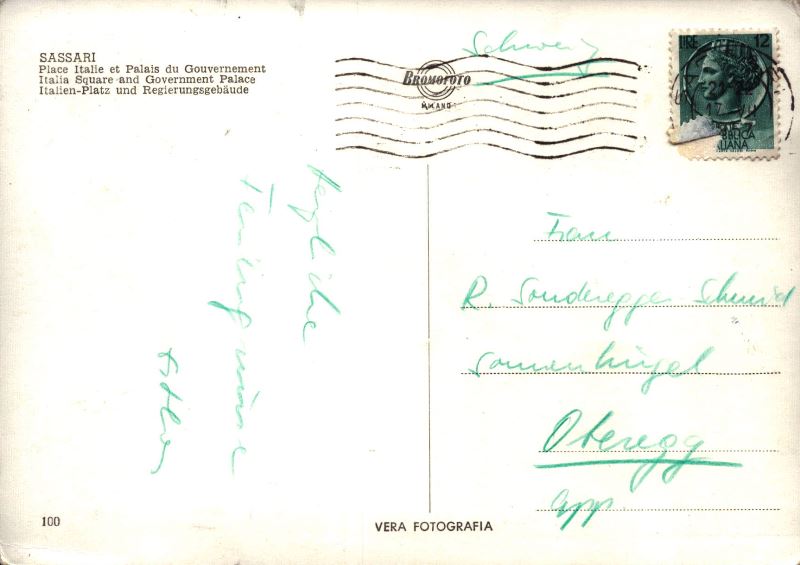 SASSARI
Place Italie et Palais du Gouvernement
Italia Square and Government Palace
Italien-Platz und Regierungsgebäude
Schweiz
BROMOFOTO
MILANO
LIRE 12
BBLICA
LIANA
Herzliche
Frau
R. Sonderegger Schmid
Sonnenhügel
Oberegg
App.
100
VERA FOTOGRAFIA